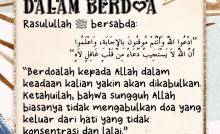 DALAM BERDOA
Rasulullah ﷺ bersabda:
"ادْعُوا اللهَ وَأَنْتُمْ مُوقِنُونَ بِالْإِجَابَةِ، وَاعْلَمُوا
أَنَّ اللهَ لَا يَسْتَجِيبُ دُعَاءً مِنْ قَلْبٍ غَافِلٍ لَاهٍ"
"Berdoalah kepada Allah dalam
keadaan kalian yakin akan dikabulkan.
Ketahuilah, bahwa sungguh Allah
biasanya tidak mengabulkan doa yang
keluar dari hati yang tidak
konsentrasi dan lalai."